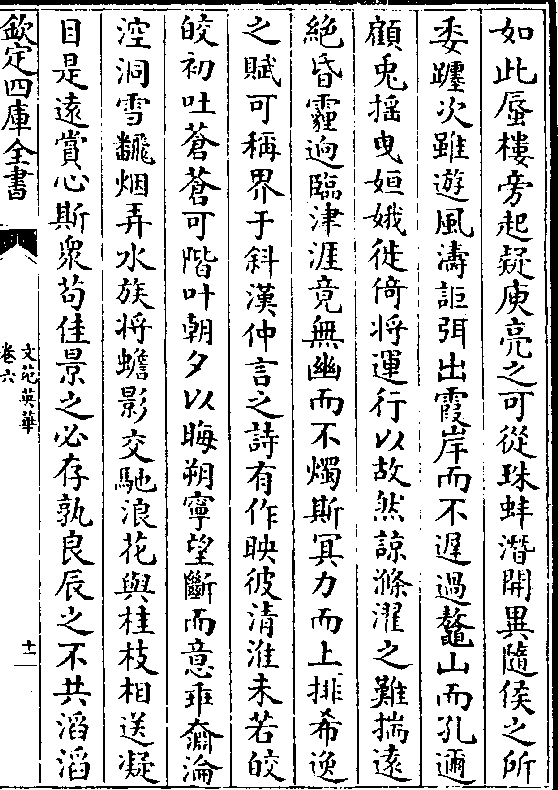 如此蜃樓旁起疑庾亮之可從珠蚌潛開異隨侯之所
委躔次雖遊風濤詎弭出霞岸而不遲過鼇山而孔邇
顧兎揺曳姮娥徙倚将運行以故然諒滌濯之難揣遠
絶昏霾逈臨津涯竟無幽而不燭斯冥力而上排希逸
之賦可稱界于斜漢仲言之詩有作映彼清淮未若皎
皎初吐蒼蒼可階叶朝夕以晦朔寧望斷而意乖奫淪
涳洞雪翻烟弄水族将蟾影交馳浪花與桂枝相送凝
目是遠賞心斯衆苟佳景之必存孰良辰之不共滔滔
欽定四庫全書
文苑英華
卷六
十一